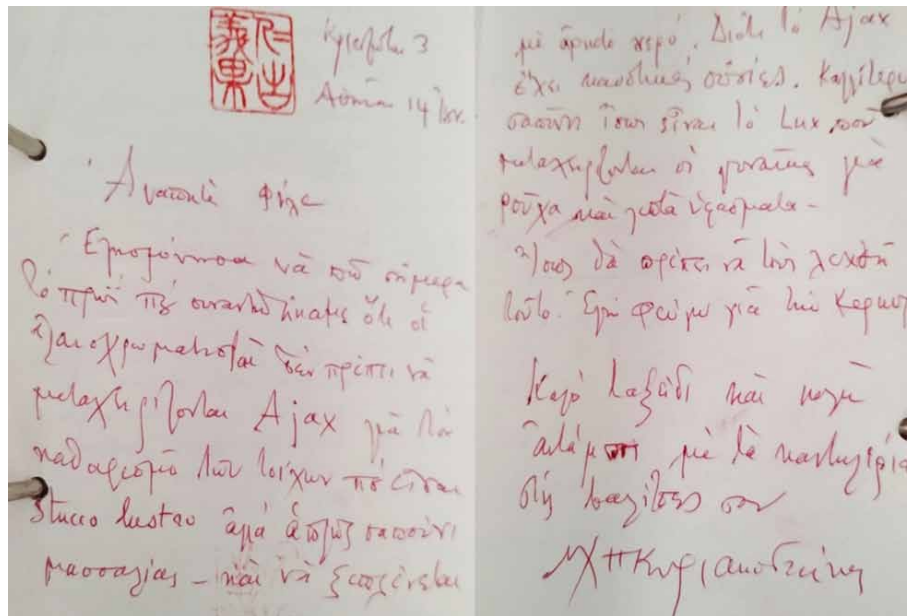 Κριεζώτου 3
Αθήνα 14 Ιαν.
Ἀγαπητὲ φίλε
Ἐλησμόνησα νὰ πῶ σήμερα
τὸ πρωῒ πού συναντηθήκαμε ὅτι οἱ
ἐλαιοχρωματισταὶ δὲν πρέπει νὰ
μεταχειρίζονται Ajax γιὰ τὸν
καθαρισμὸ τῶν τοίχων ποὺ εἶναι
Stucco lustro ἀλλὰ ἁπλῶς σαπούνι
μασσαλίας – καὶ νὰ ξεπλένεται
μὲ ἄφθονο νερό. Διότι τὸ Ajax
ἔχει καυστικὲς οὐσίες. Καλλίτερο
σαπούνι ἴσως εἶναι τὸ Lux ποὺ
μεταχειρίζονται οἱ γυναῖκες γιὰ
ροῦχα καὶ λεπτὰ ὑφάσματα –
Ἴσως θὰ πρέπει νὰ τοὺς λεχθῆ
τοῦτο. Ἐγὼ φεύγω γιὰ τὴν
Καλὸ ταξείδι καὶ καλὴ
ἀντάμωση μὲ τὰ
στὶς βαλίτσες σου